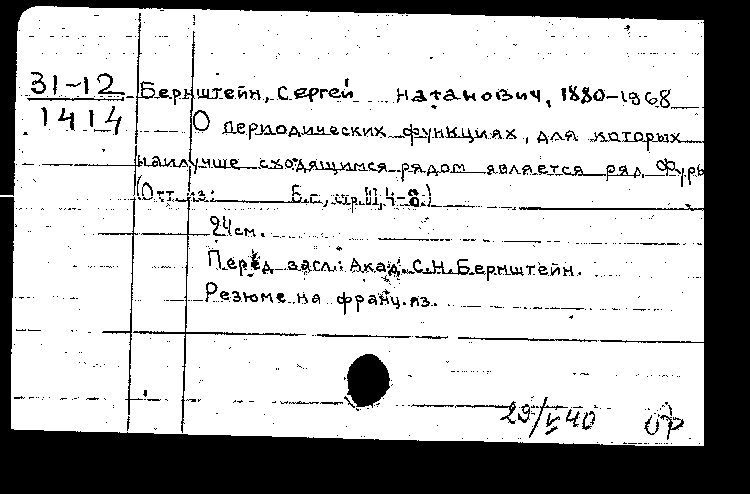 31-12 Бернштейн, Сергей Натанович, 1880-1968
1414 О периодических функциях, для которых
наилучше сходящимся рядом является ряд Фурь
(Отт. из: Б.г., стр. 4-8.)
24см.
Перед загл.: Акад. С.Н.Бернштейн.
Резюме на франц. яз.
29/V 40